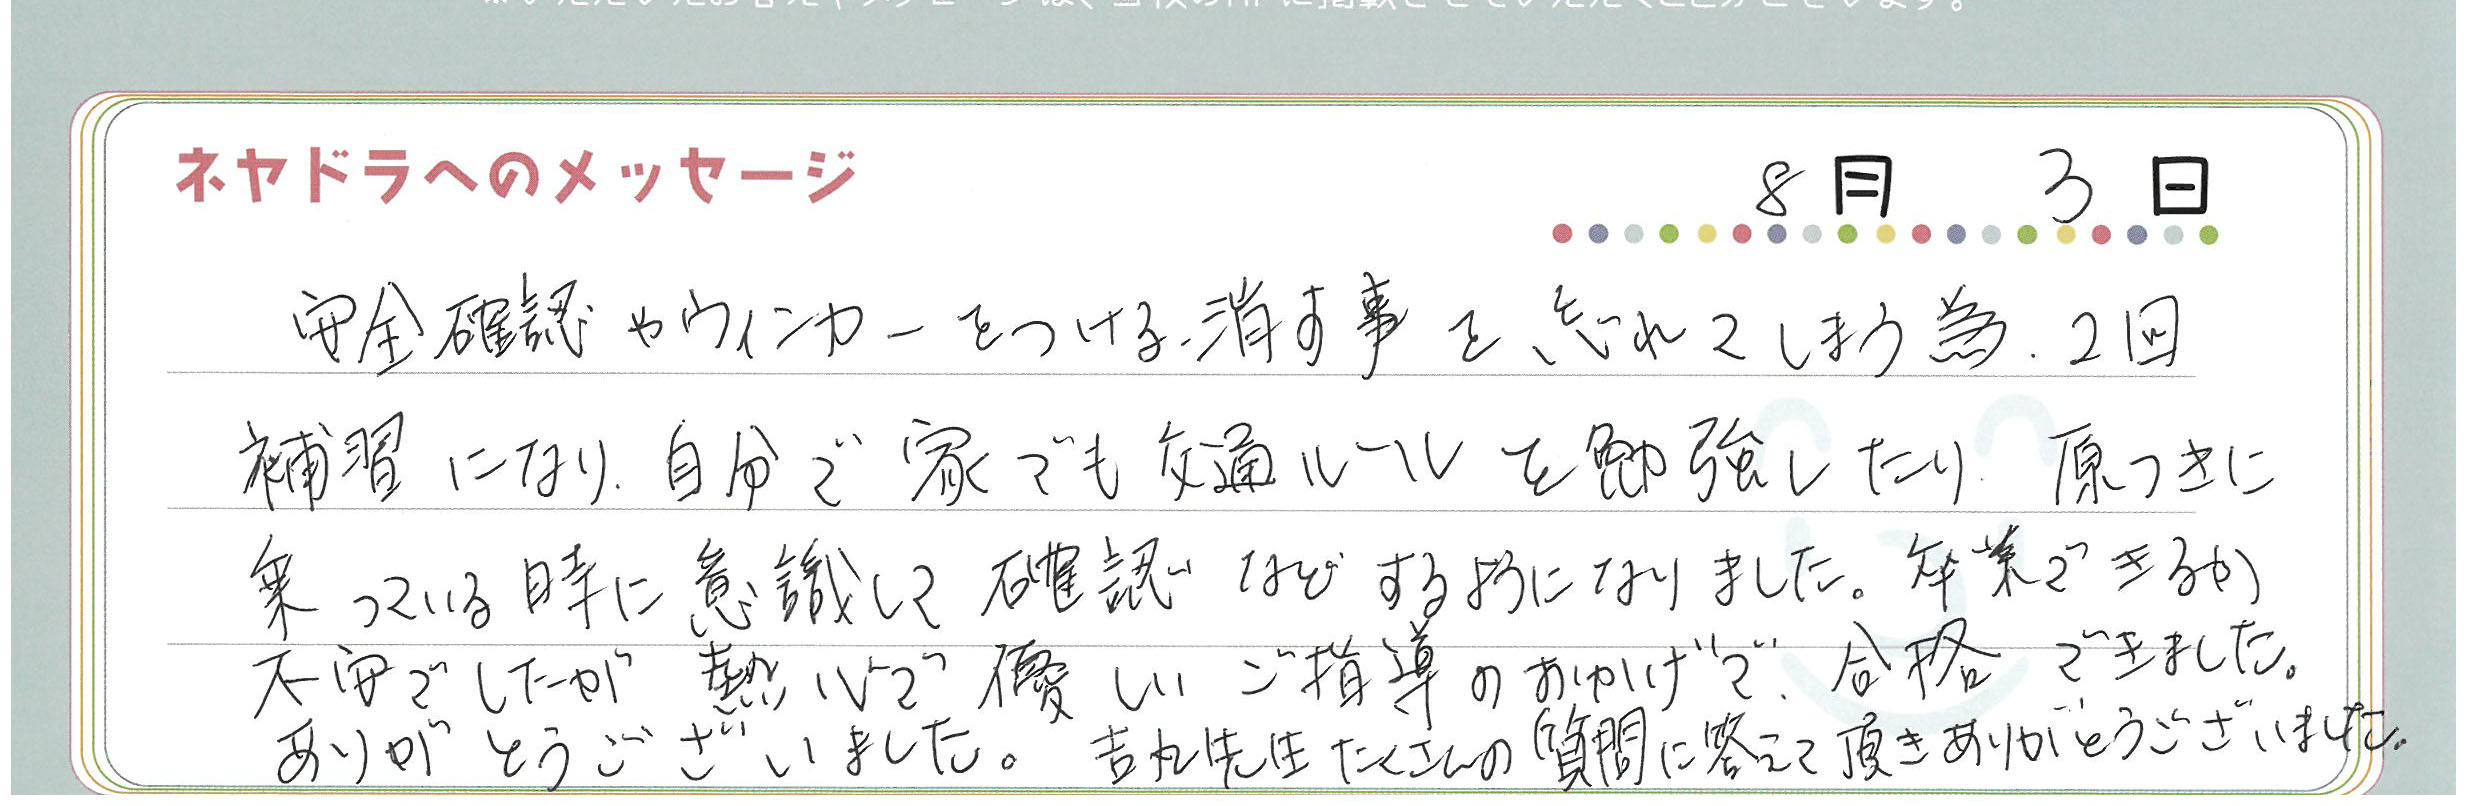 ※いただいたお答えやメッセージは、当校のHPに掲載させていただくことがございます。
ネヤドラへのメッセージ
8月 3日
安全確認やウィンカーをつける、消す事を、忘れてしまう為、2回
補習になり、自分で家でも交通ルールを勉強したり、原つきに
乗っている時に意識して確認などするようになりました。卒業できるか
不安でしたが熱心で優しいご指導のおかげで、合格できました。
ありがとうございました。吉丸先生たくさんの質問に答えて頂きありがとうございました。